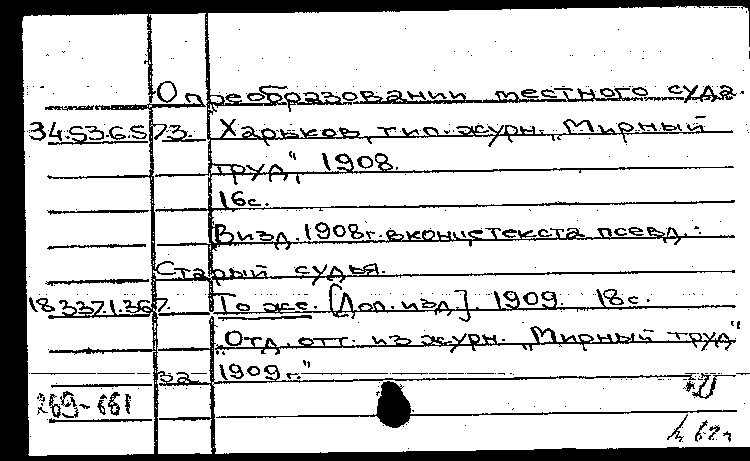 О преобразовании местного суда.
34.53.6.573. Харьков, тип. журн. „Мирный
труд", 1908.
16с.
В изд. 1908г. в конце текста псевд.:
Старый судья.
18.337.1.367. То же. [Доп. изд.]. 1909. 18с.
„Отд. отт. из журн. „Мирный труд"
за 1909г."
269-661